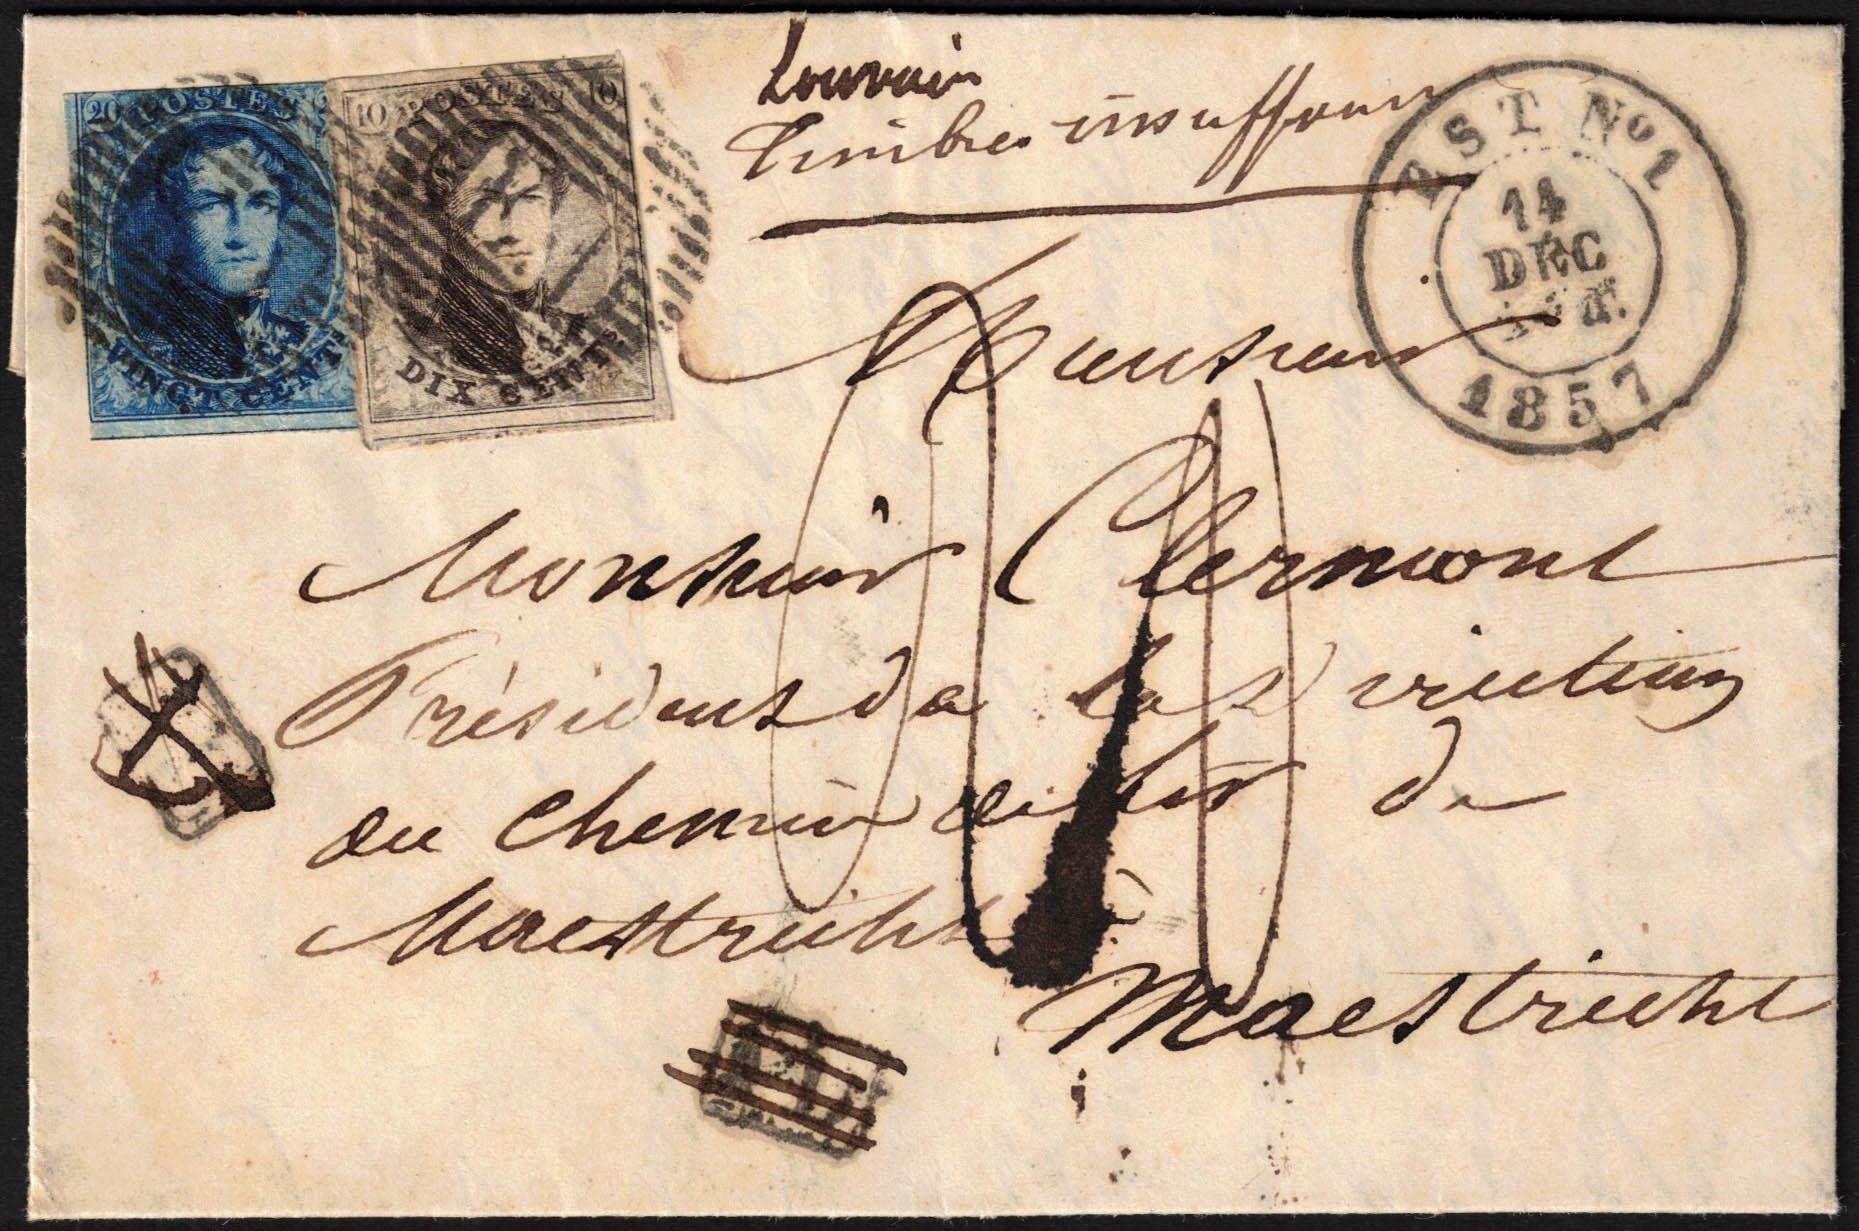 20 POSTES
VINGT CENTS
10 POSTES 10
DIX CENTS
Louvain
Timbres insuffisans
EST No 1
14
DEC
1857
Monsieur
Monsieur Clermont
Président de la Direction
du chemin de fer de
Maestricht à
Maestricht